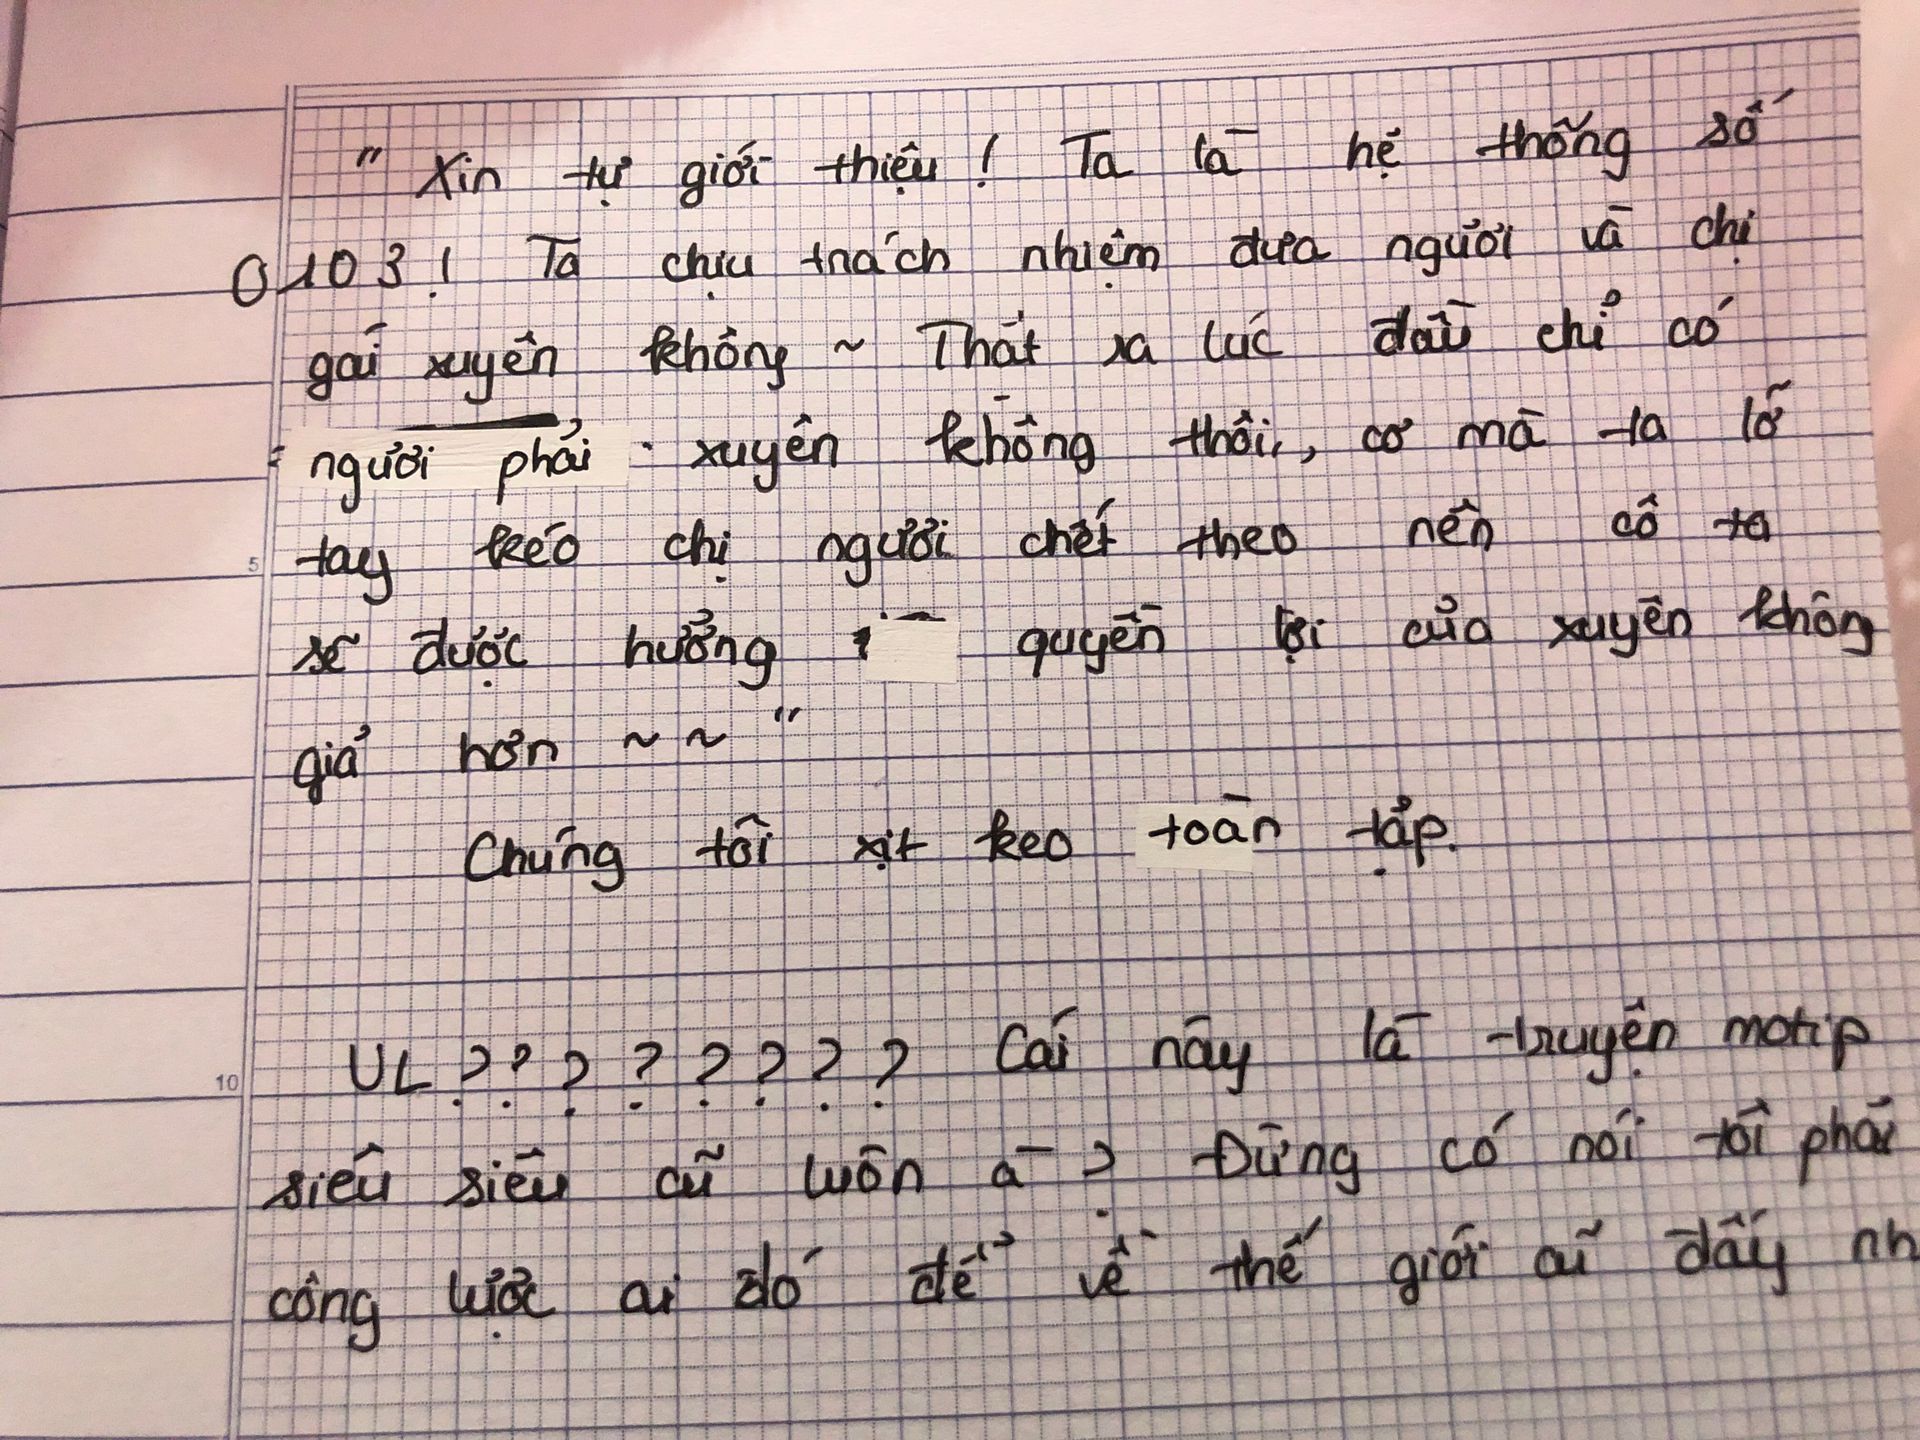 " Xin tự giới thiệu ! Ta là hệ thống số
0103 ! Ta chịu trách nhiệm đưa người và chị
gái xuyên không ~ Thật ra lúc đầu chỉ có
người phải xuyên không thôi, cơ mà ta lỡ
tay kéo chị người chết theo nên cô ta
sẽ được hưởng quyền lợi của xuyên không
giả hơn ~ ~ "
Chúng tôi xịt keo toàn tập.
5
10
UL ???????? Cái này là truyện motip
siêu siêu cũ luôn à ? Đừng có nói tôi phải
công lược ai đó để về thế giới cũ đấy nh